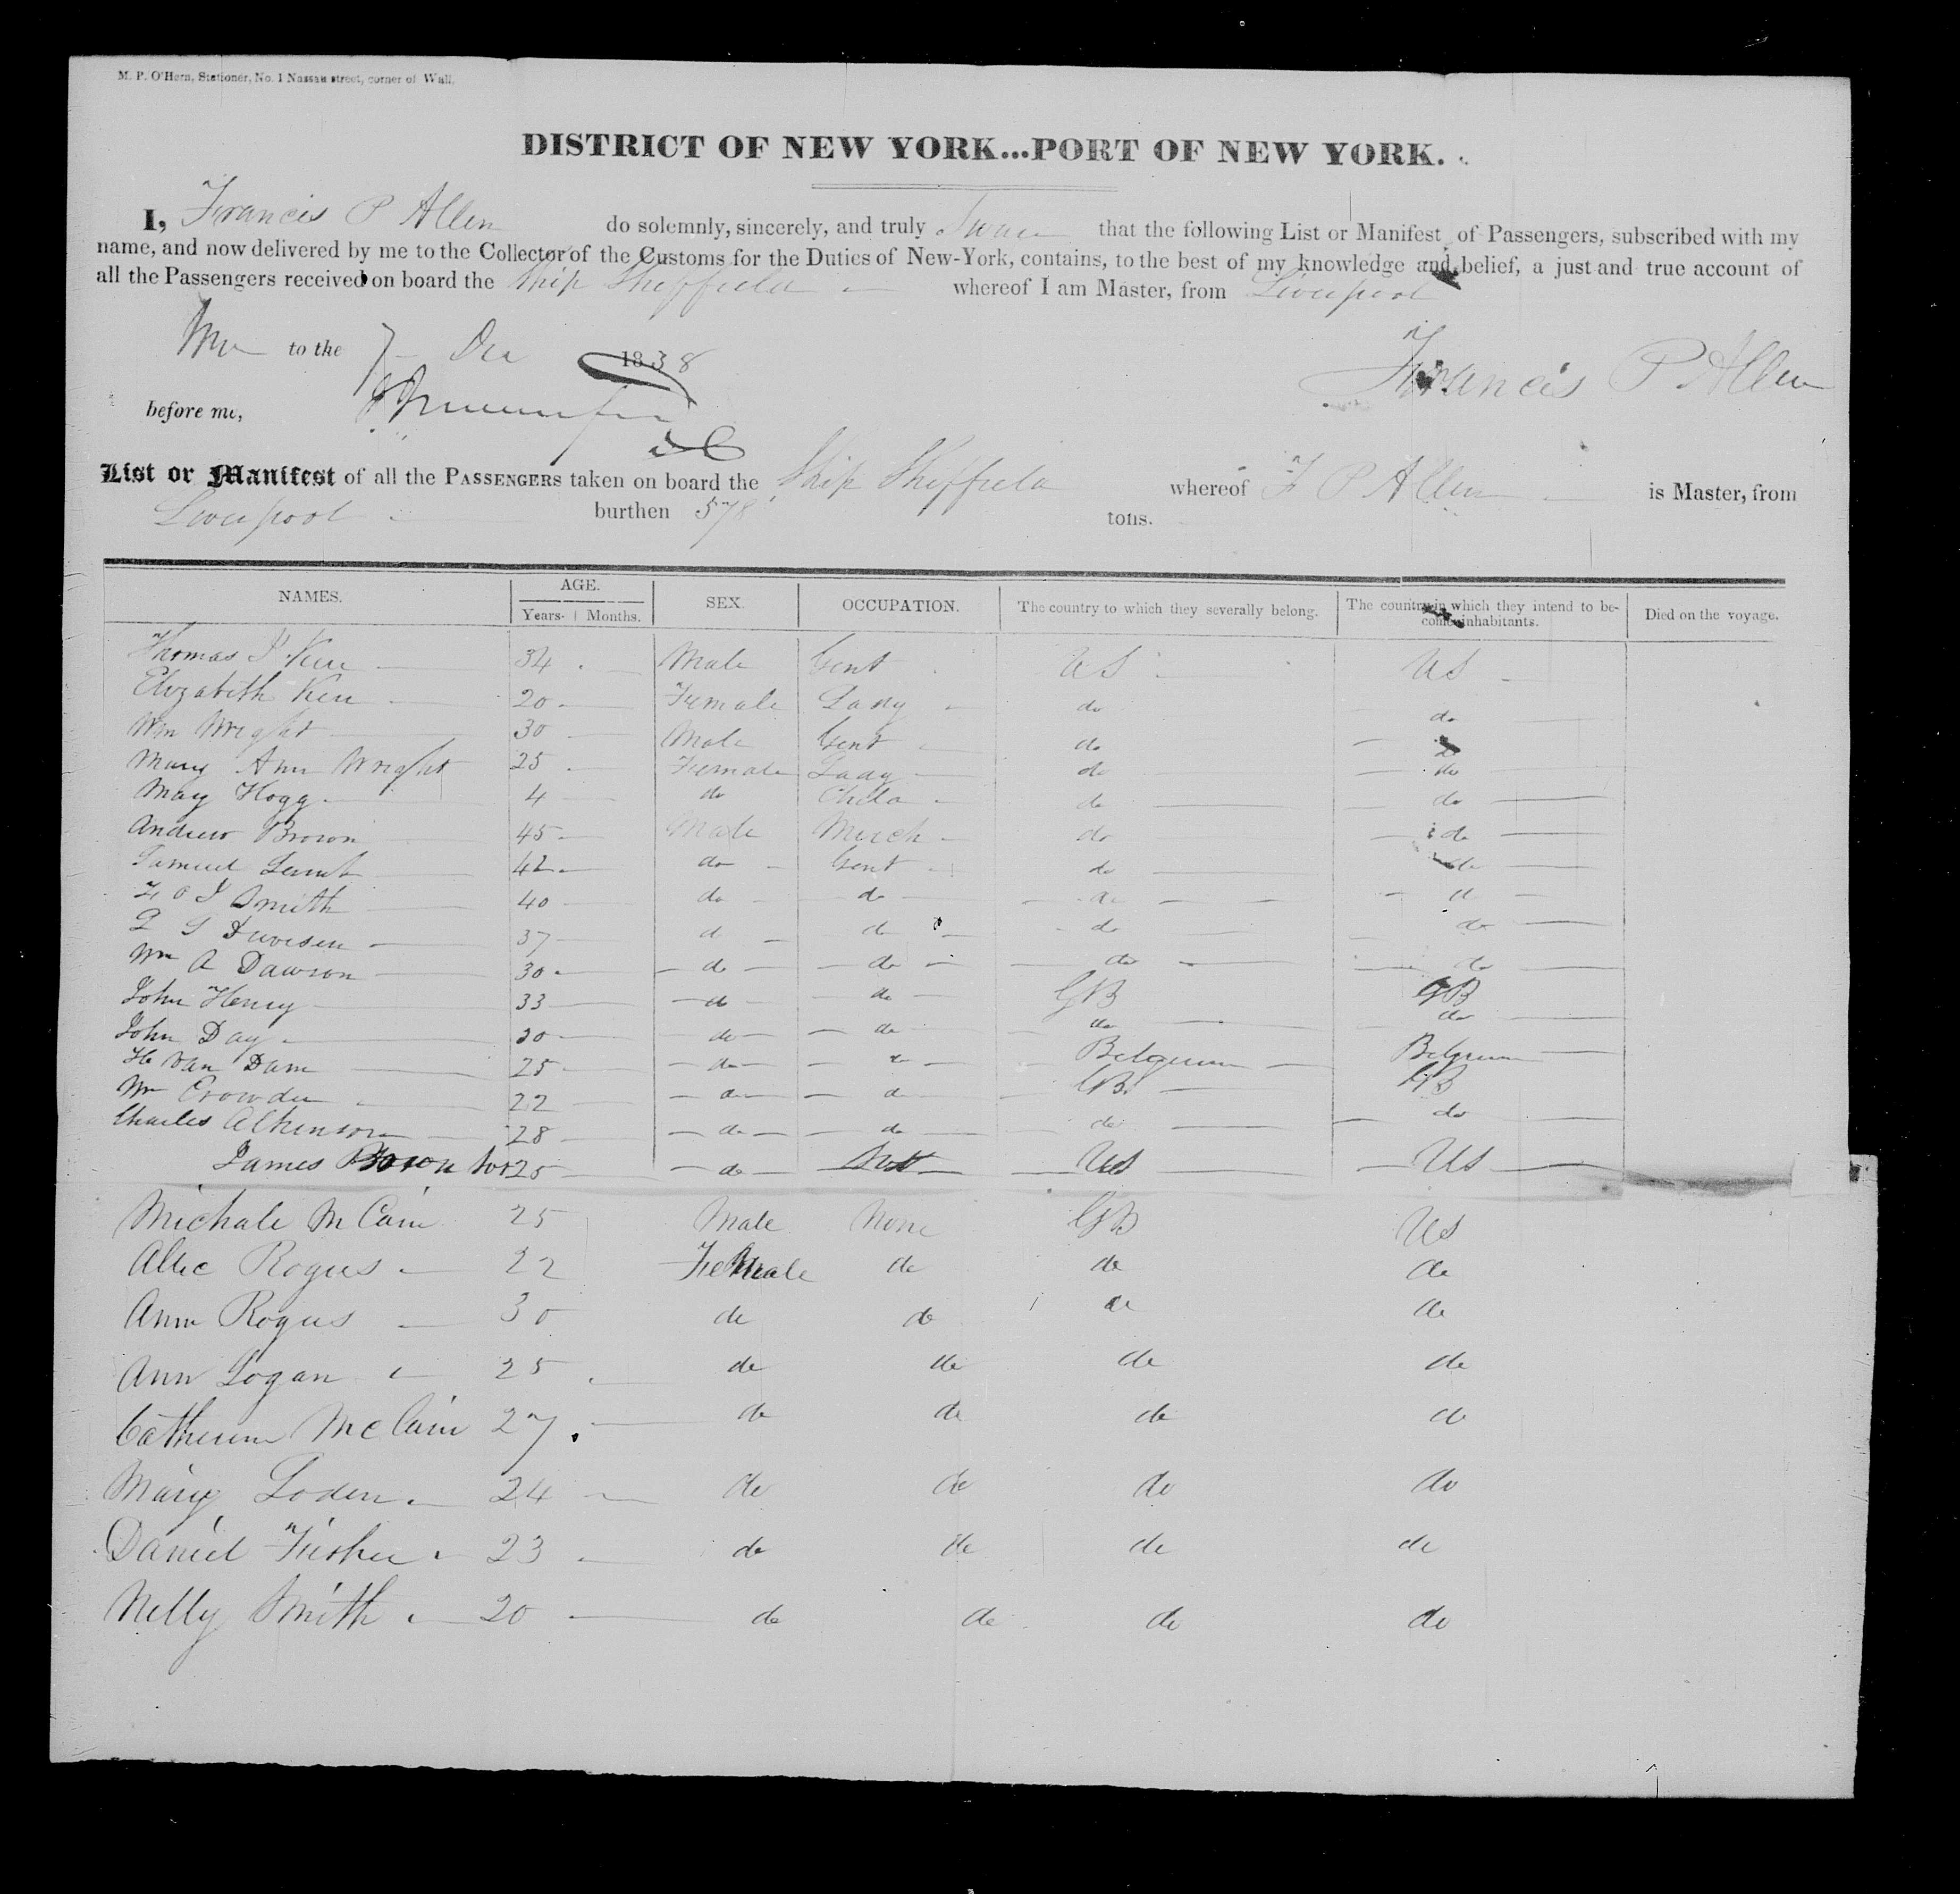 M. P. O'Hern, Stationer, No. 1 Nassau street, corner of Wall.
DISTRICT OF NEW YORK...PORT OF NEW YORK.
I, Francis P Allen do solemnly, sincerely, and truly Swear that the following List or Manifest of Passengers, subscribed with my
name, and now delivered by me to the Collector of the Customs for the Duties of New-York, contains, to the best of my knowledge and belief, a just and true account of
all the Passengers received on board the Ship Sheffield whereof I am Master, from Liverpool
to the 7 Dec 1838
Francis P Allen
before me,
List or Manifest of all the PASSENGERS taken on board the Ship Sheffield whereof F P Allen is Master, from
Liverpool burthen 578 tons.
NAMES. AGE. SEX. OCCUPATION. The country to which they severally belong. The country in which they intend to be- Died on the voyage.
Years. Months. come inhabitants.
Thomas Kerr 34 Male Gent US US
Elizabeth Kerr 20 Female Lady do do
Wm Wright 30 Male Gent do do
Mary Ann Wright 25 Female Lady do do
May Hogg 4 do Child do do
Andrew Brown 45 Male Merch do do
Samuel 42 do Gent do do
Smith 40 do do do do
37 do do do do
Wm A Dawson 30 do do do do
John Henry 33 do do GB GB
John Day 20 do do do do
H Van Dam 25 do do Belgium Belgium
Wm Crowder 22 do do GB GB
Charles Atkinson 28 do do do do
James 25 do US US
Michale McCain 25 Male None GB US
Allic Rogus 22 Female do do do
Ann Rogus 30 do do do do
Ann Logan 25 do do do do
Catherine McCain 27 do do do do
Mary Loden 24 do do do do
Daniel Fisher 23 do do do do
Nelly Smith 20 do do do do